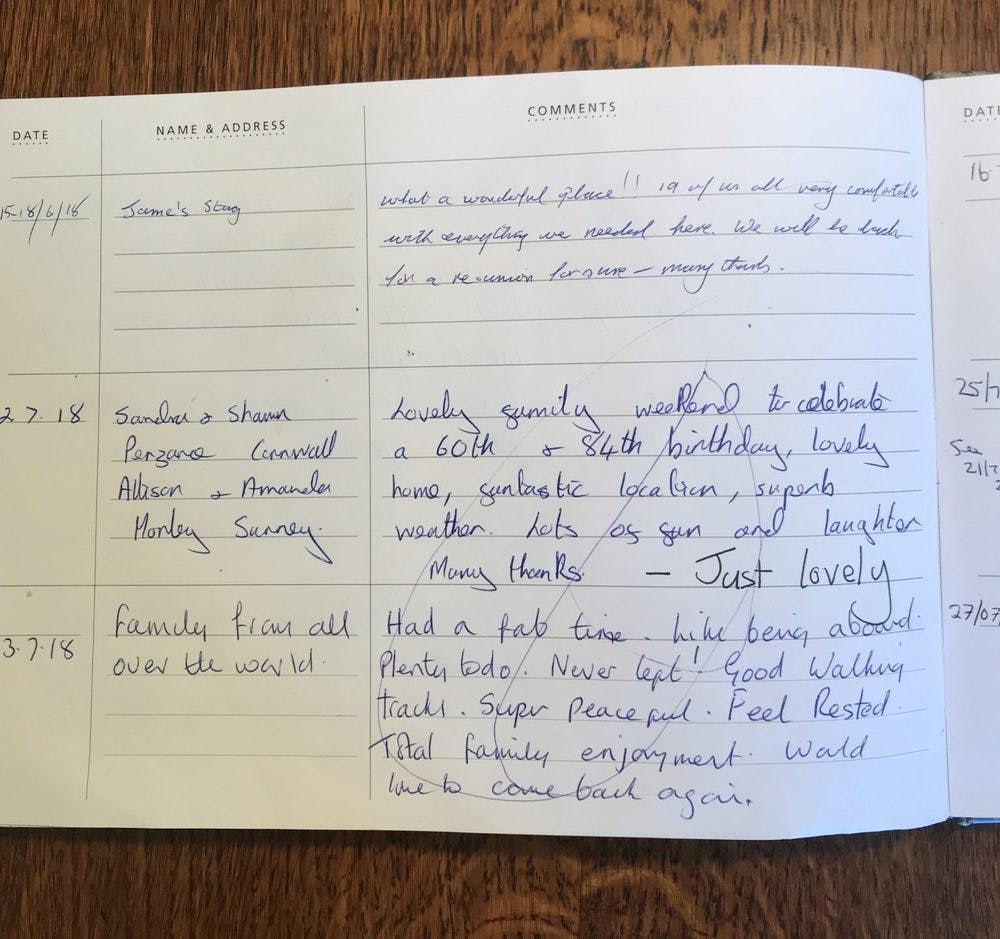 DATE
NAME & ADDRESS
COMMENTS
15-18/6/18
Jame's Stag
what a wonderful place!! 19 of us all very comfortable
with everything we needed here. We will be back
for a re-union for sure – many thanks.
2 7. 18
Sandra & Shawn
Penzance Cornwall
Allison & Amanda
Horley Surrey.
Lovely family weekend to celebrate
a 60th & 84th birthday, lovely
home, fantastic location, superb
weather. Lots of fun and laughter
Many thanks. – Just lovely
3.7.18
Family from all
over the world.
Had a fab time. Like being aboard.
Plenty to do. Never left! Good Walking
tracks. Super Peaceful. Feel Rested.
Total family enjoyment. Would
love to come back again.
DATE
16-
25/7
See
21/7
27/07